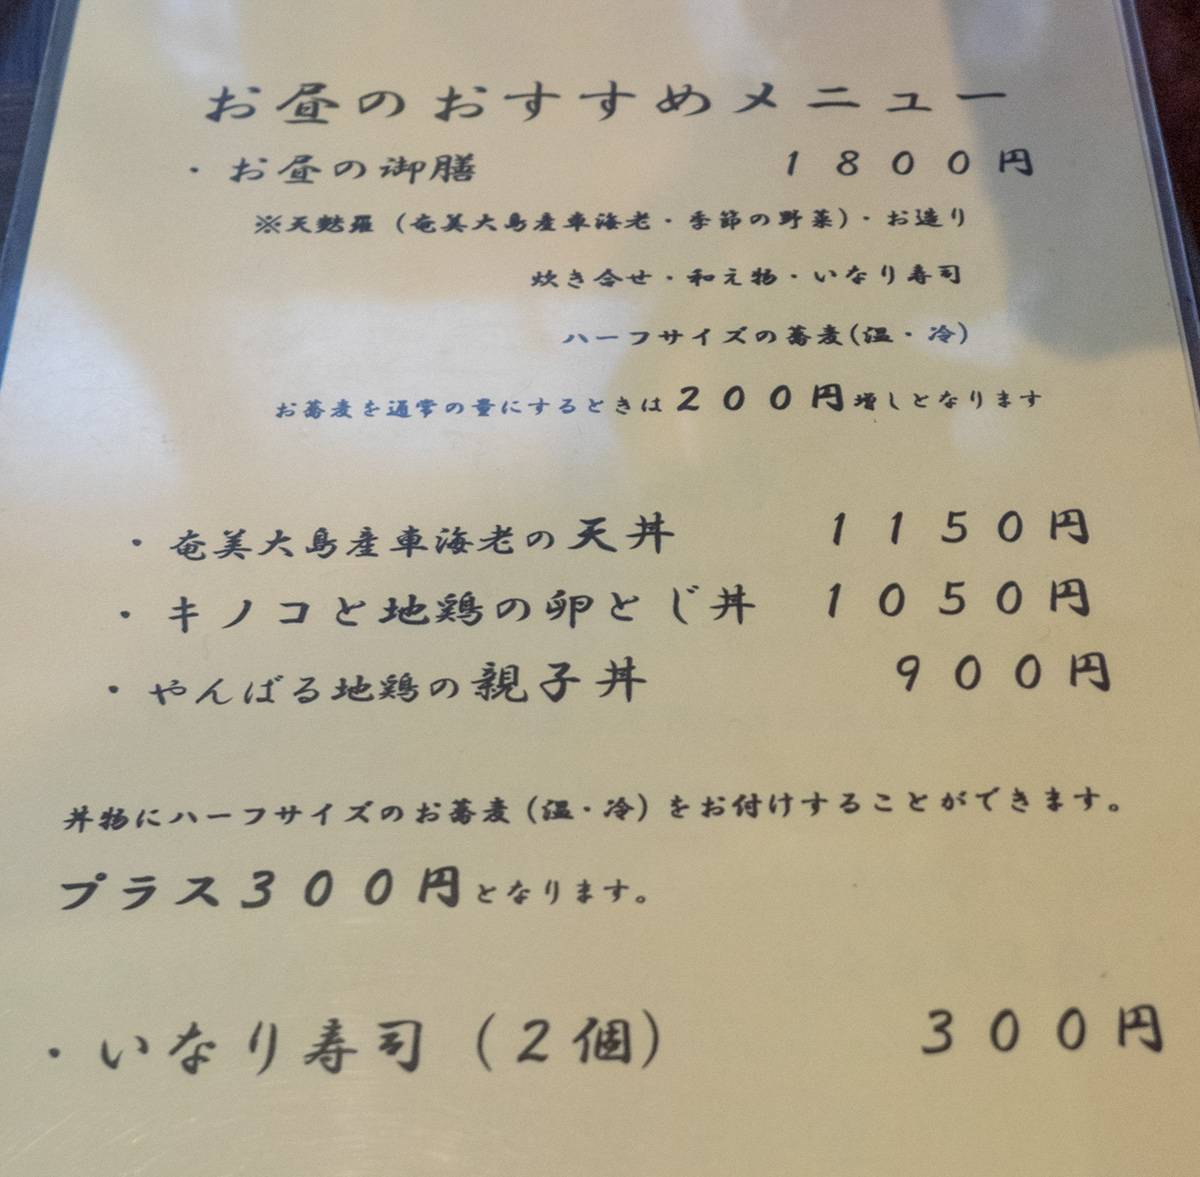 お昼のおすすめメニュー
・お昼の御膳 1800円
※天麩羅（奄美大島産車海老・季節の野菜）・お造り
炊き合せ・和え物・いなり寿司
ハーフサイズの蕎麦(温・冷)
お蕎麦を通常の量にするときは200円増しとなります
・奄美大島産車海老の天丼 1150円
・キノコと地鶏の卵とじ丼 1050円
・やんばる地鶏の親子丼 900円
丼物にハーフサイズのお蕎麦（温・冷）をお付けすることができます。
プラス300円となります。
・いなり寿司（2個） 300円